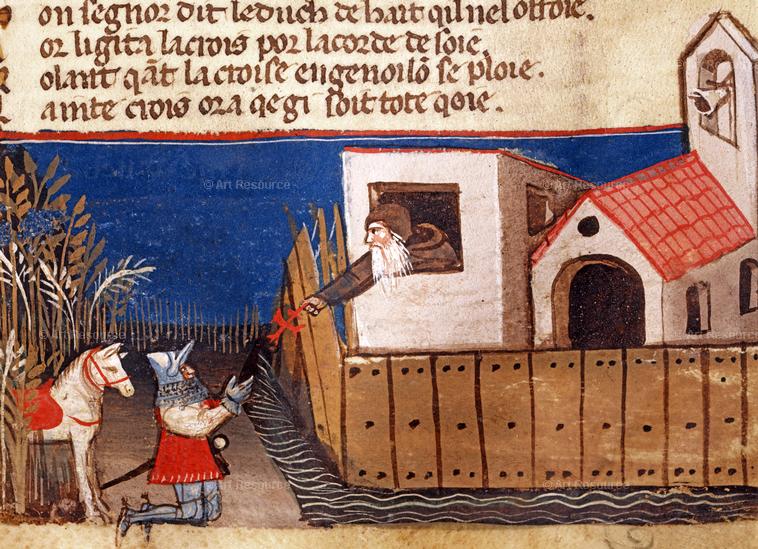 on segnor dit leduch de bait quil nel ostoie.
or ligita lacrois por lacorde de soie.
olant qãt la croise engenoilõ se ploie.
ainte crois ora qe gi soit tote qoie.
© Art Resource
© Art Resource
© Art Resource
© Art Resource
© Art Resource
© Art Resource
© Art Resource
© Art Resource
© Art Resource